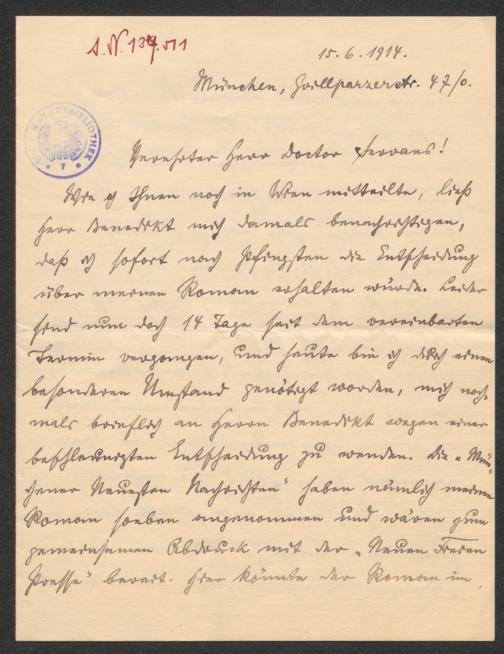 J.N. 139.511
15.6.1914.
München, Grillparzerstr. 47/0.
STADTBIBLIOTHEK
Verehrter Herr Doctor Servaes!
Wie ich Ihnen noch in Wien mitteilte, ließ
Herr Benedikt mich damals benachrichtigen,
daß ich sofort nach Pfingsten die Entscheidung
über meinen Roman erhalten würde. Leider
sind nun doch 14 Tage seit dem vereinbarten
Termin vergangen, und heute bin ich durch einen
besonderen Umstand genötigt worden, mich noch-
mals brieflich an Herrn Benedikt wegen einer
beschleunigten Entscheidung zu wenden. Die „Mün-
chener Neuesten Nachrichten“ haben nämlich meinen
Roman soeben angenommen und wären zum
gemeinsamen Abdruck mit der „Neuen Freien
Presse“ bereit. Hier könnte der Roman im